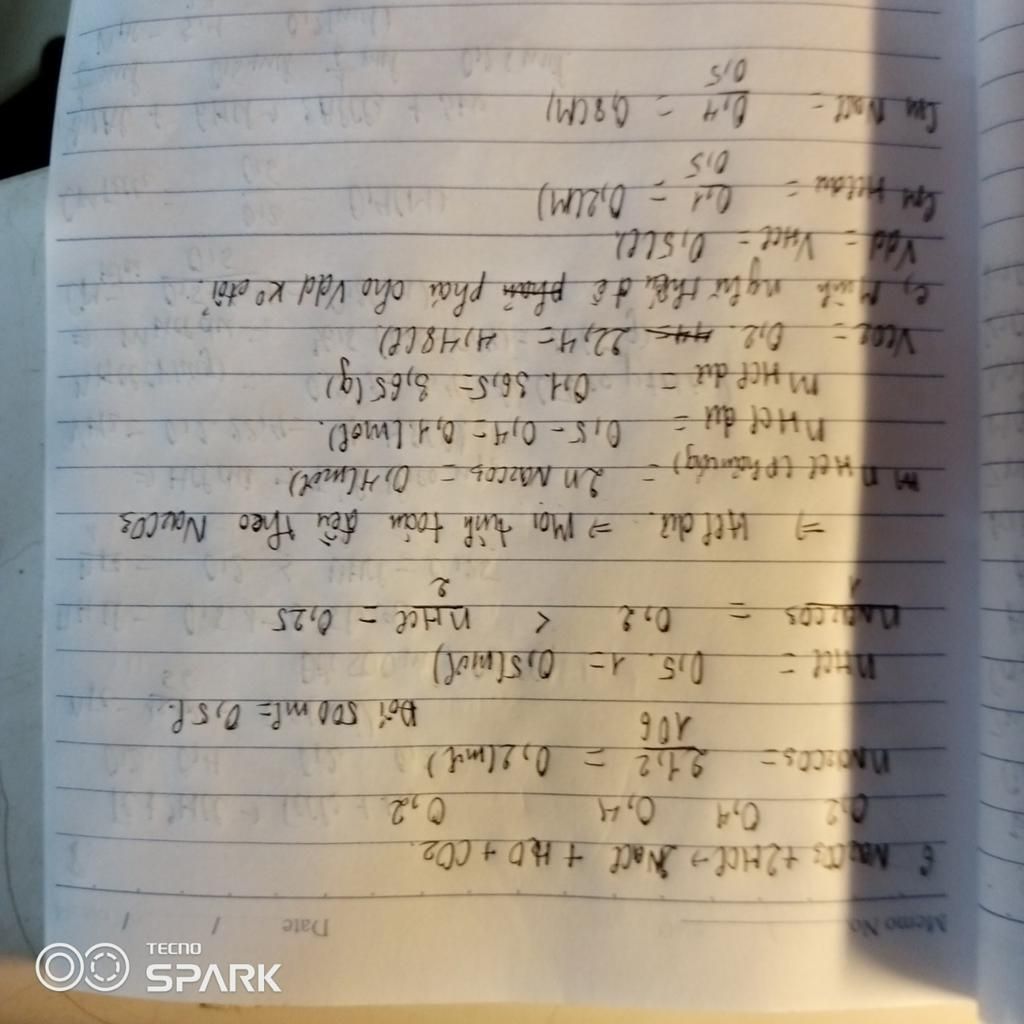 Memo No.
Date / /
6 Na2CO3 + 2HCl → 2NaCl + H2O + CO2.
0,2 0,4 0,4 0,2
nNa2CO3 = 21,2/106 = 0,2(mol)
Đổi 500ml = 0,5l.
nHCl = 0,5. 1 = 0,5(mol)
nNa2CO3/1 = 0,2 < nHCl/2 = 0,25
=> HCl dư. => Mọi tính toán đều theo Na2CO3
nHCl (phản ứng) = 2n Na2CO3 = 0,4(mol).
nHCl dư = 0,5 - 0,4 = 0,1 (mol).
mHCl dư = 0,1. 36,5 = 3,65(g)
VCO2 = 0,2. 22,4 = 4,48(l).
c, Mình nghĩ thêm đề phải cho Vdd ko đổi.
Vdd = VHCl = 0,5(l).
CM HCl dư = 0,1/0,5 = 0,2(M)
CM NaCl = 0,4/0,5 = 0,8(M)
TECNO
SPARK